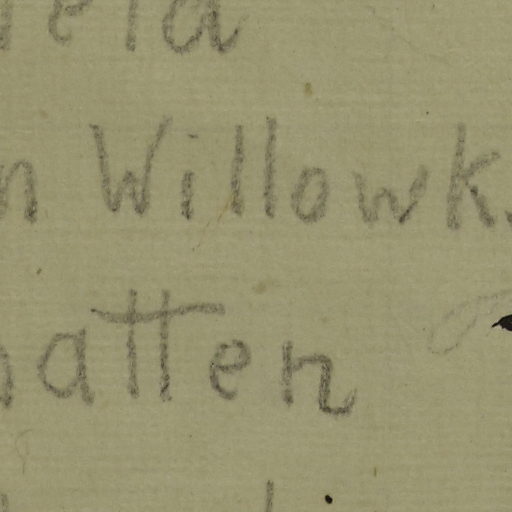 eld
n Willowk.
hatten